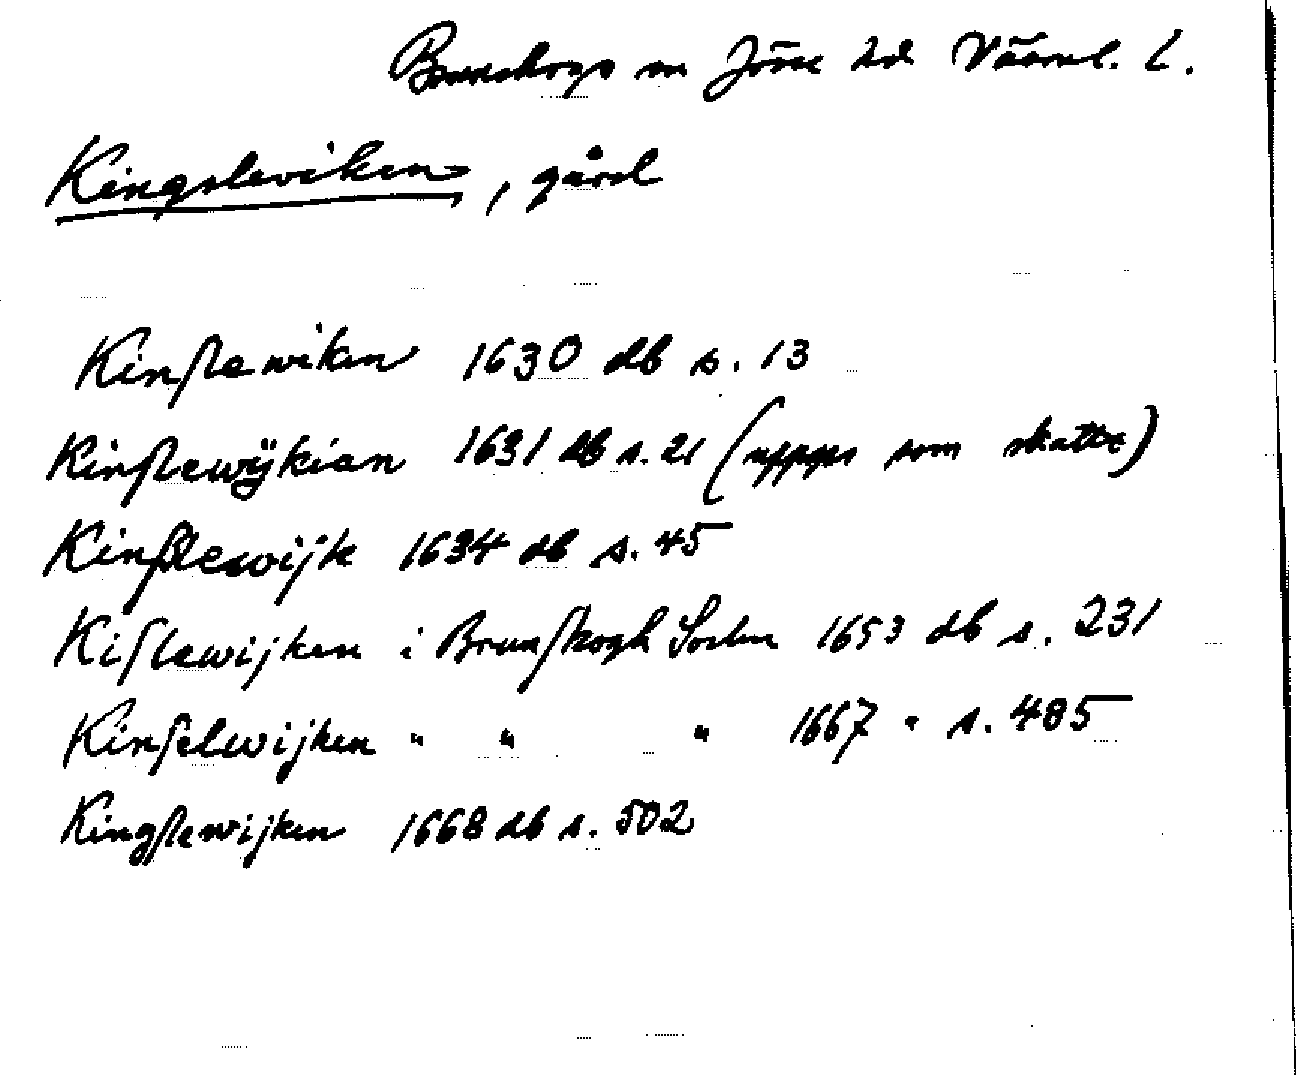 Brunskogs sn Jösse hd Värml. L.
Kingsleviken, gård
Kinslewiken 1630 db s. 13
Kinslewÿkian 1631 db s. 21 (uppges som skatte)
Kinslewijk 1634 db s. 45
Kislewijken i Brunskogh Sochn 1653 db s. 231
Kinselwijken " " " 1667 " s. 485
Kingslewijken 1668 db s. 502